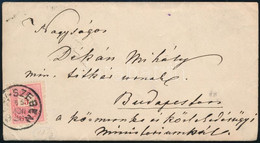 Nagyságos
Dékán Mihály
min. titkár urnak
Budapesten
a közmunka és közlekedésügyi
Ministeriumnál.
SZEBEN